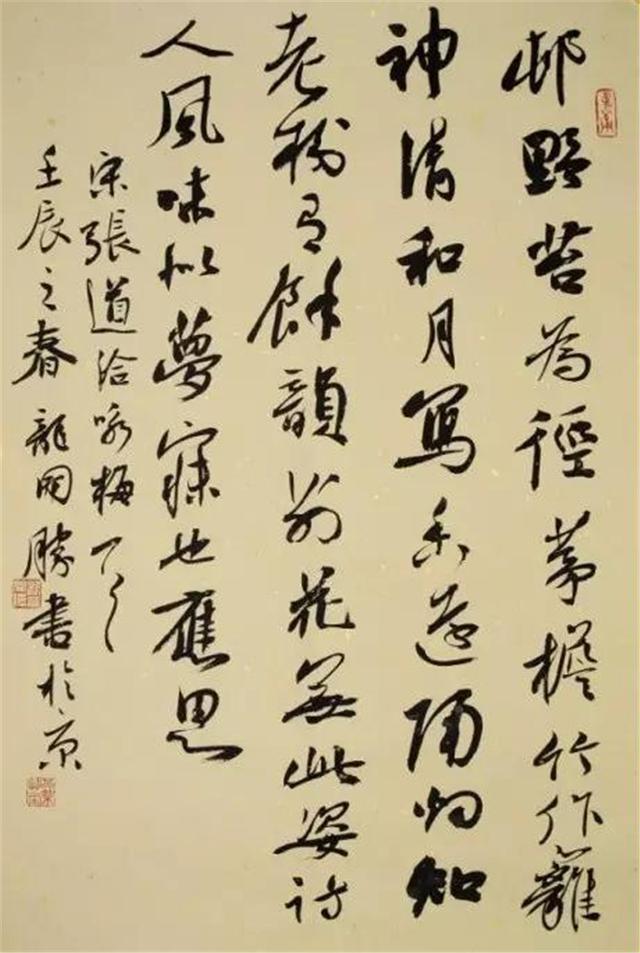 邨野苔為徑茅檐竹作籬
神清和月寫香遠隔烟知
老樹有餘韻別花無此姿詩
人風味似夢寐也應思
宋張道洽咏梅一首
壬辰之春龍開勝書於京